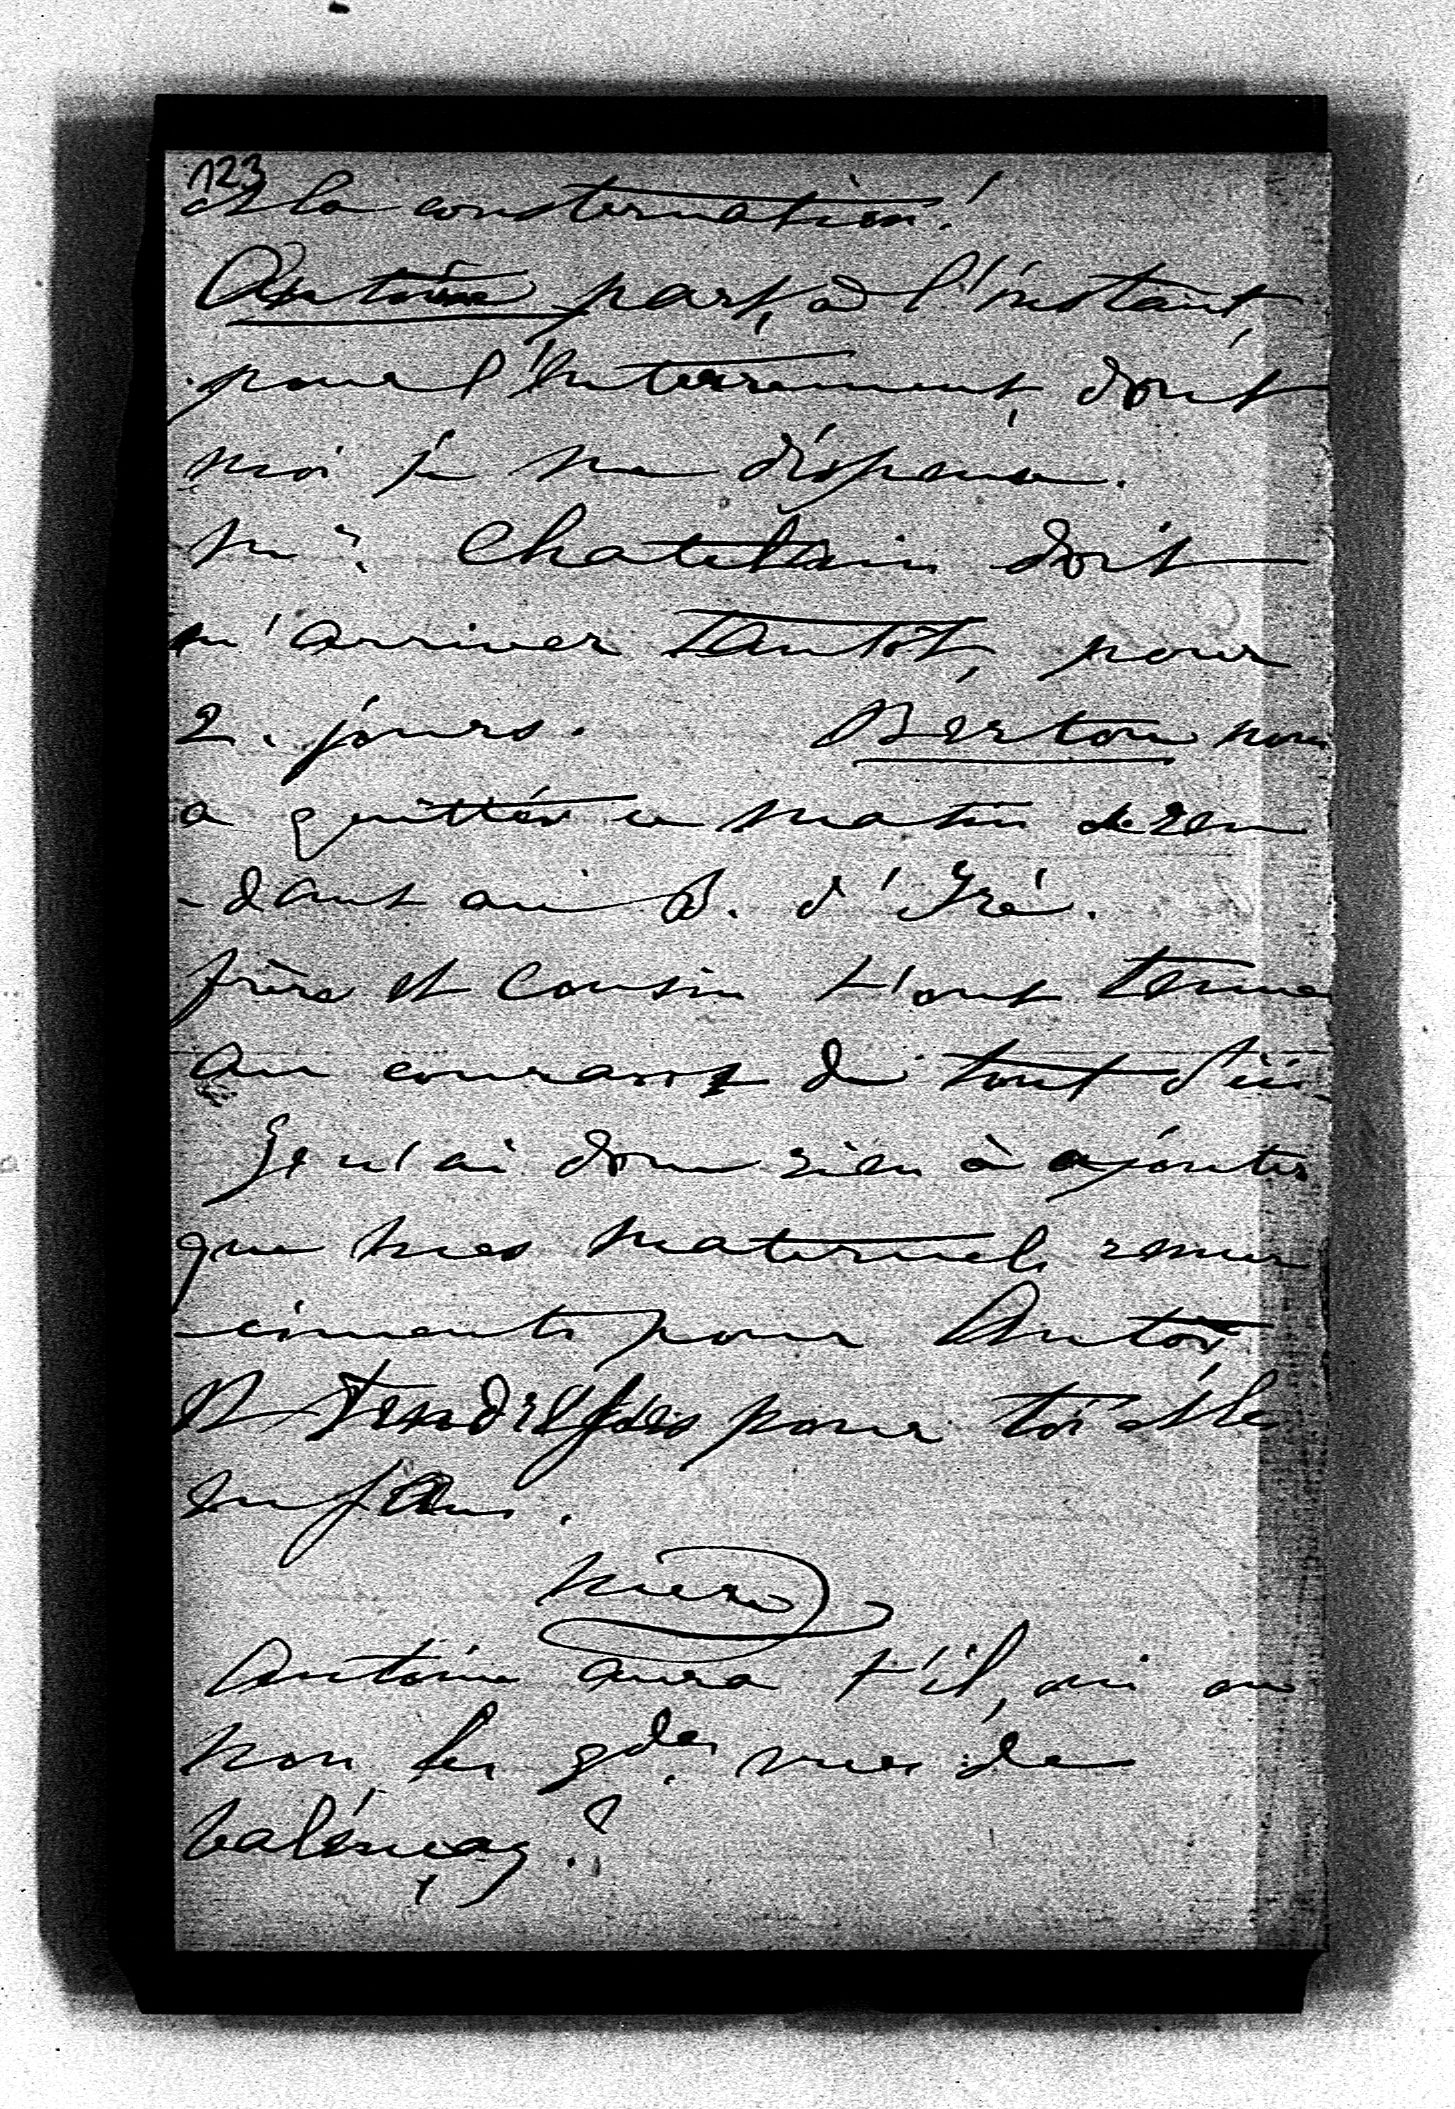 123
et la consternation!
Antoine part, à l'instant,
pour l'enterrement, dont
moi je me dispense.
Mr. Chatelain doit
m'arriver tantôt, pour
2. jours. Berton nous
a quittés ce matin se ren
-dant au B. d'Iré.
frère et cousin t'ont tenue
au courant de tout d'ici
Je n'ai donc rien à ajouter
que mes maternels remer
-ciments pour Antoi
et tendresses pour toi et les
enfans.
mère
Antoine aura t'il, oui ou
non, les gdes vues de
Valençay?